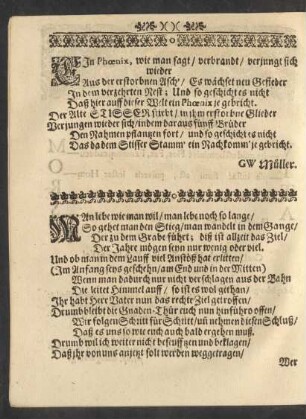 EIn Phœnix, wie man sagt/ verbrandt/ verjungt sich
wieder
Aus der erstorbnen Asch'/ Es wächset neu Gefieder
In dem verzehrten Nest; Und so geschicht es nicht
Daß hier auff dieser Welt ein Phœnix je gebricht.
Der Alte STISSER stirbt/ in ihm erstorbne Glieder
Verjungen wieder sich/ indem daraus fünff Brüder
Den Nahmen pflantzen fort/ und so geschicht es nicht
Das da dem Stisser Stamm' ein Nachkomm' je gebricht.
GW Müller.
MAn lebe wie man will/ man lebe noch so lange/
So gehet man den Stieg/ man wandelt in dem Gange/
Der zu dem Grabe führt; diß ist allzeit das Ziel/
Der Jahre mögen seyn nur wenig oder viel.
Und ob man in dem Lauff viel Anstöß hat erlitten/
(Im Anfang sey's geschehn/ am End und in der Mitten)
Wenn man dadurch nur nicht verschlagen aus der Bahn
Die leitet Himmel auff/ so ist es wol gethan/
Ihr habt Herr Vater nun das rechte Ziel getroffen/
Drumb bleibt die Gnaden-Thür euch nun hinführo offen/
Wir folgen Schritt für Schritt/ uñ nehmen diesen Schluß/
Daß es uns so wie euch auch bald ergehen muß.
Drumb wil ich weiter nicht beseuffzen und beklagen/
Daß ihr von uns anjetzt solt werden weggetragen/
Wer